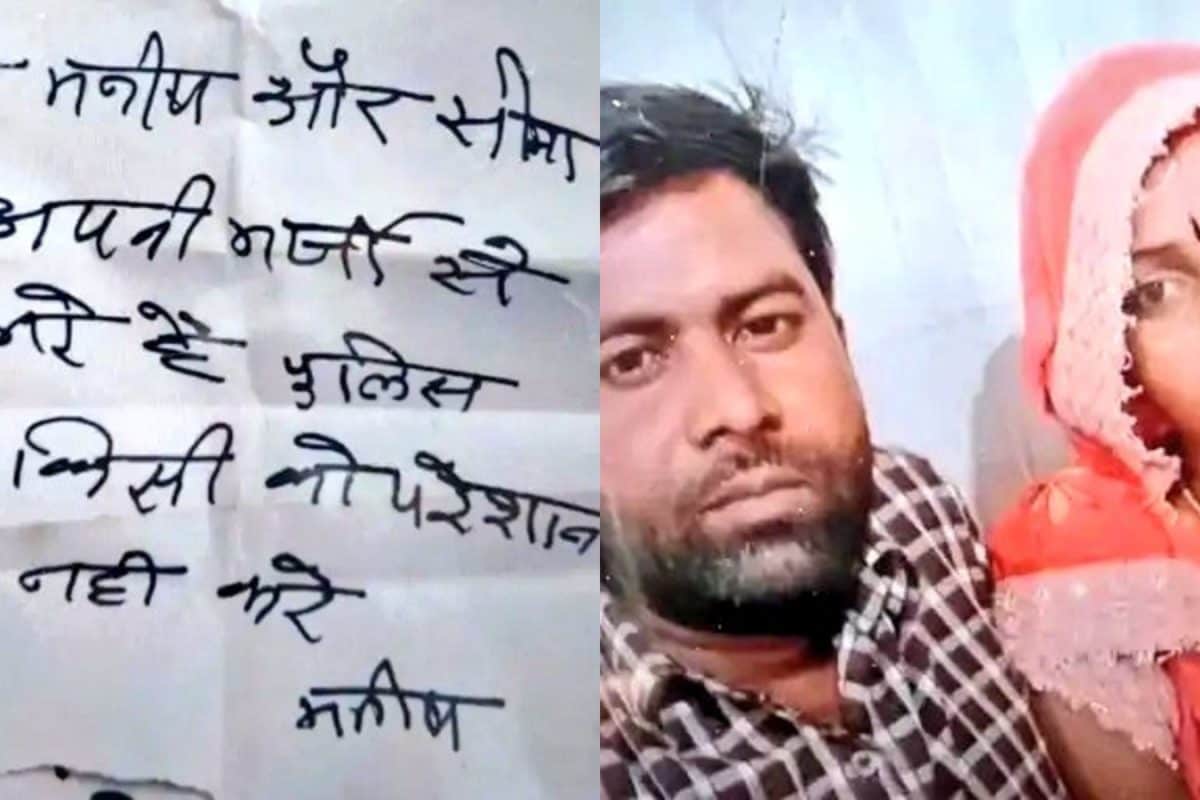 मनीष और सीमा
अपनी मर्जी से
मरे है पुलिस
किसी को परेशान
नही करे
मनीष